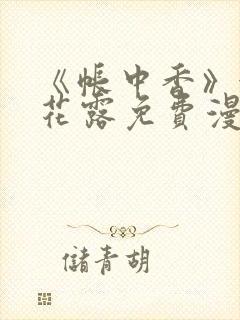 《帐中香》
花露免費漫
儲青胡